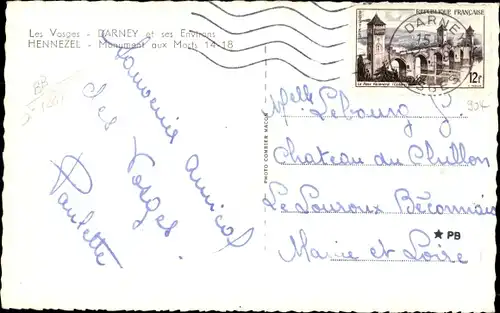 Les Vosges - DARNEY et ses Environs
HENNEZEL - Monument aux Morts 14-18
Souvenir amical
des Vosges
Paulette
PHOTO COMBIER MACON
RÉPUBLIQUE FRANÇAISE
12f
DARNEY
15
VOSGES
Melle Lebourg J
Chateau du Chillon
Le Louroux Béconnais
Maine et Loire
★ PB